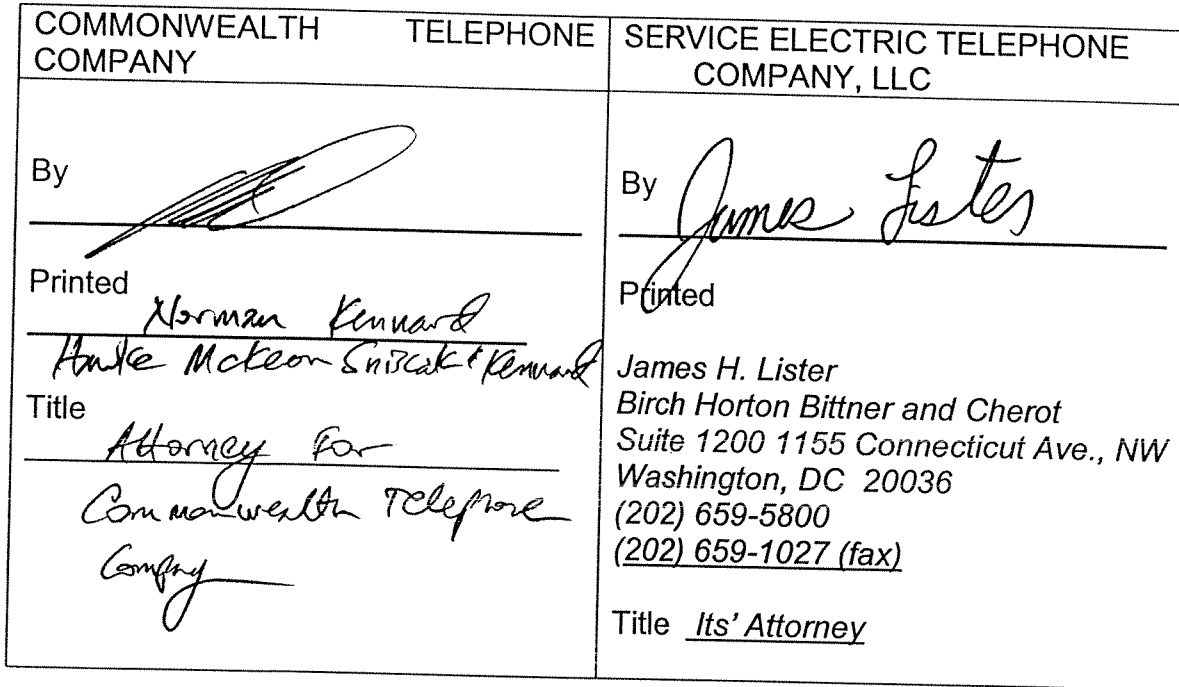 COMMONWEALTH TELEPHONE
COMPANY
By
Printed
Norman Kennard
Hawke McKeon Sniscak & Kennard
Title
Attorney For
Commonwealth Telephone
Company
SERVICE ELECTRIC TELEPHONE
COMPANY, LLC
By James Lister
Printed
James H. Lister
Birch Horton Bittner and Cherot
Suite 1200 1155 Connecticut Ave., NW
Washington, DC 20036
(202) 659-5800
(202) 659-1027 (fax)
Title Its' Attorney